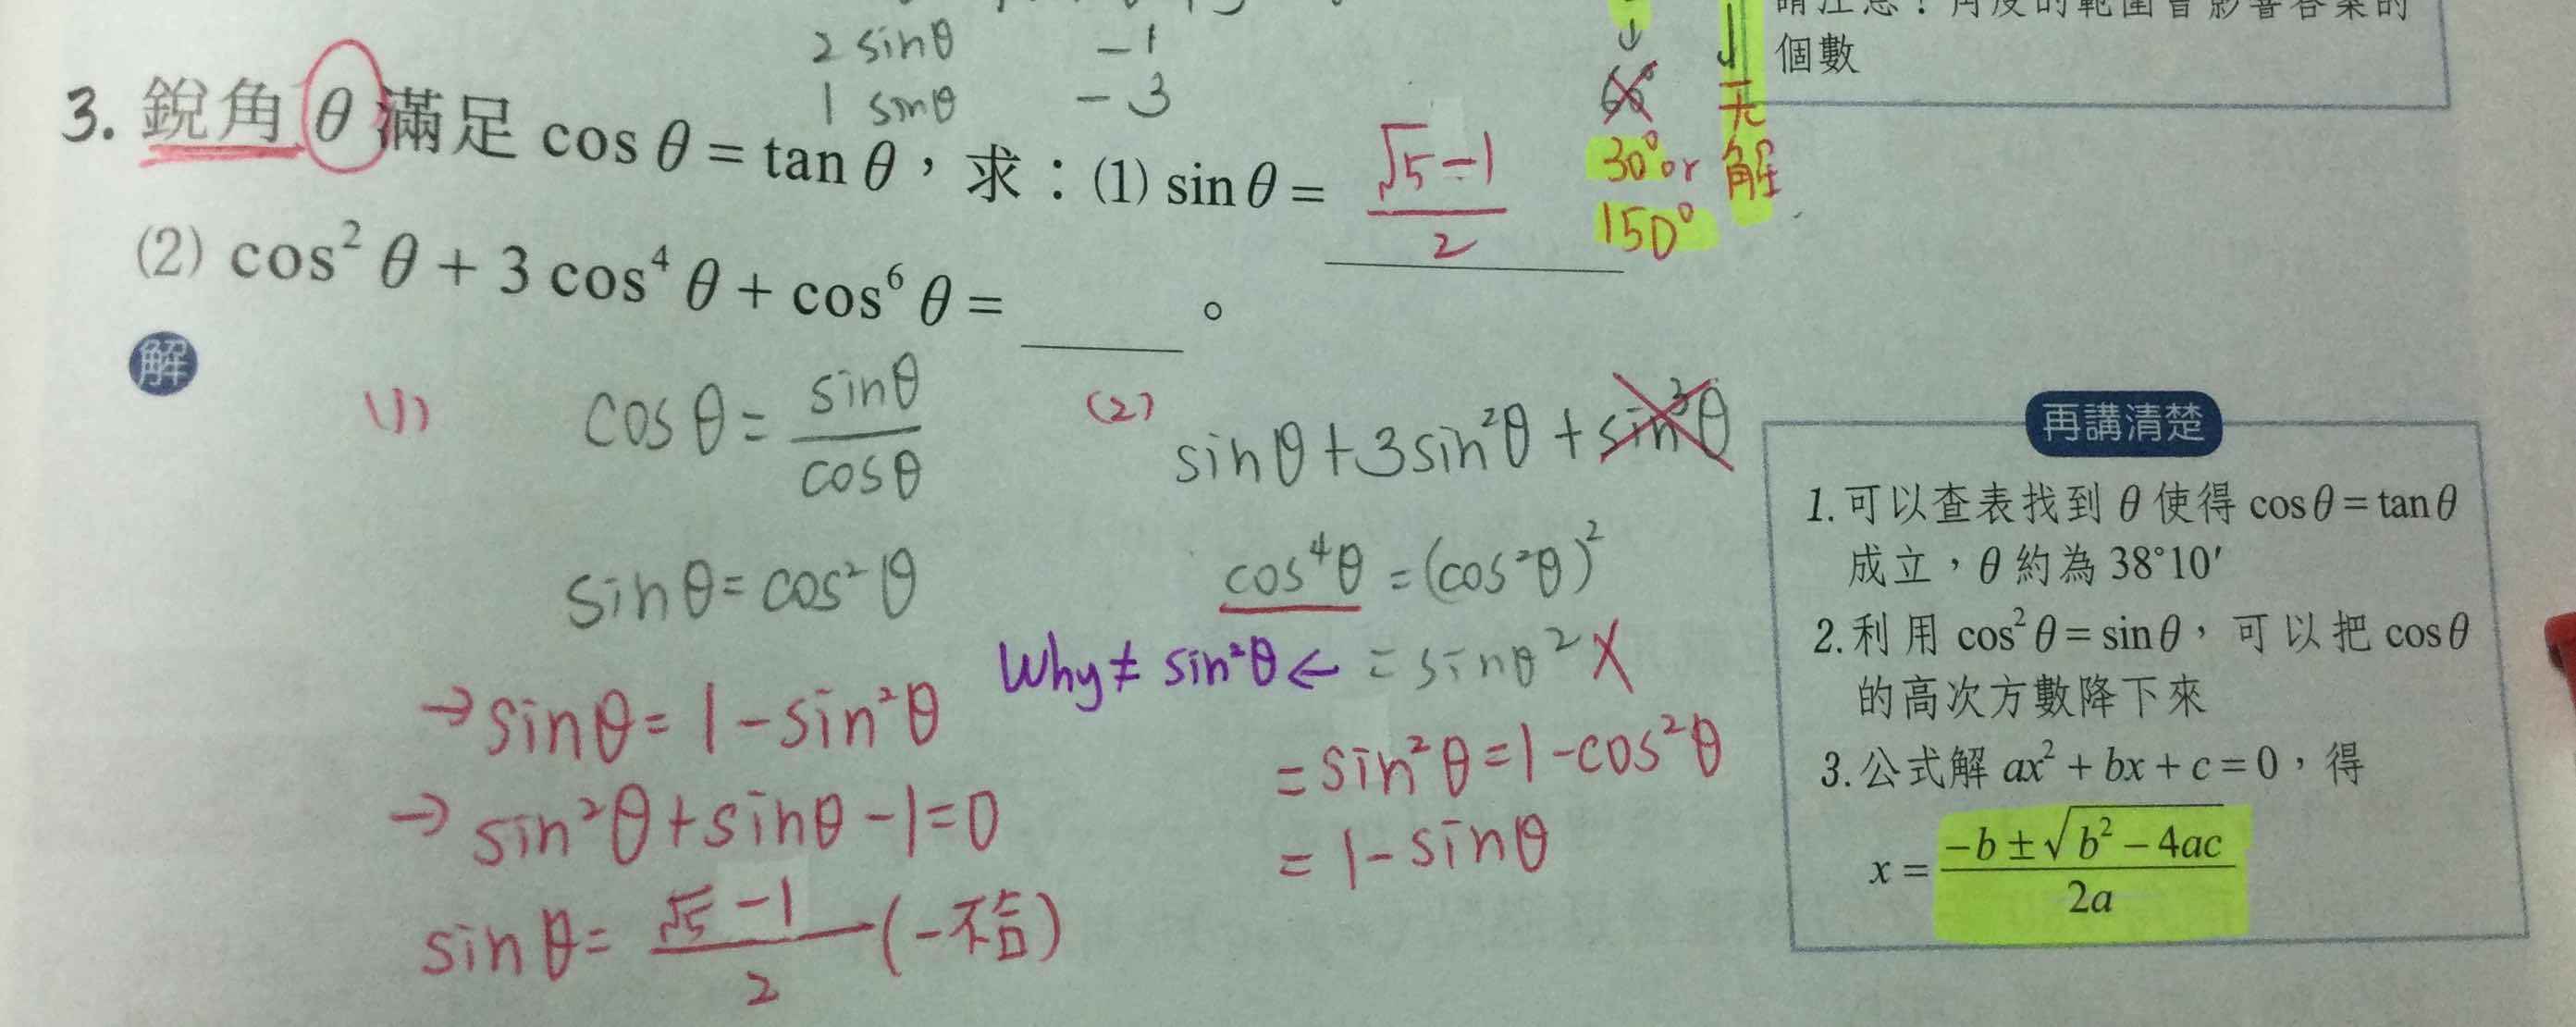 請注意！角度的範圍會影響答案的
個數
2 sinθ −1
1 sinθ −3
↓
60°
30° or
150°
↓
无
解
3. 銳角 θ 滿足 cos θ = tan θ，求：(1) sin θ = (√5−1)/2
(2) cos² θ + 3 cos⁴ θ + cos⁶ θ = ＿＿＿。
解
(1)
cosθ = sinθ/cosθ
sinθ = cos²θ
→ sinθ = 1 − sin²θ
→ sin²θ + sinθ − 1 = 0
sinθ = (√5 −1)/2 (−不合)
(2)
sinθ + 3sin²θ + sin³θ
cos⁴θ = (cos²θ)²
Why ≠ sin²θ ← = sinθ² X
= sin²θ = 1 − cos²θ
= 1 − sinθ
再講清楚
1. 可以查表找到 θ 使得 cos θ = tan θ
成立，θ 約為 38°10′
2. 利用 cos² θ = sin θ，可以把 cos θ
的高次方數降下來
3. 公式解 ax² + bx + c = 0，得
x = (−b ± √(b² − 4ac))/2a